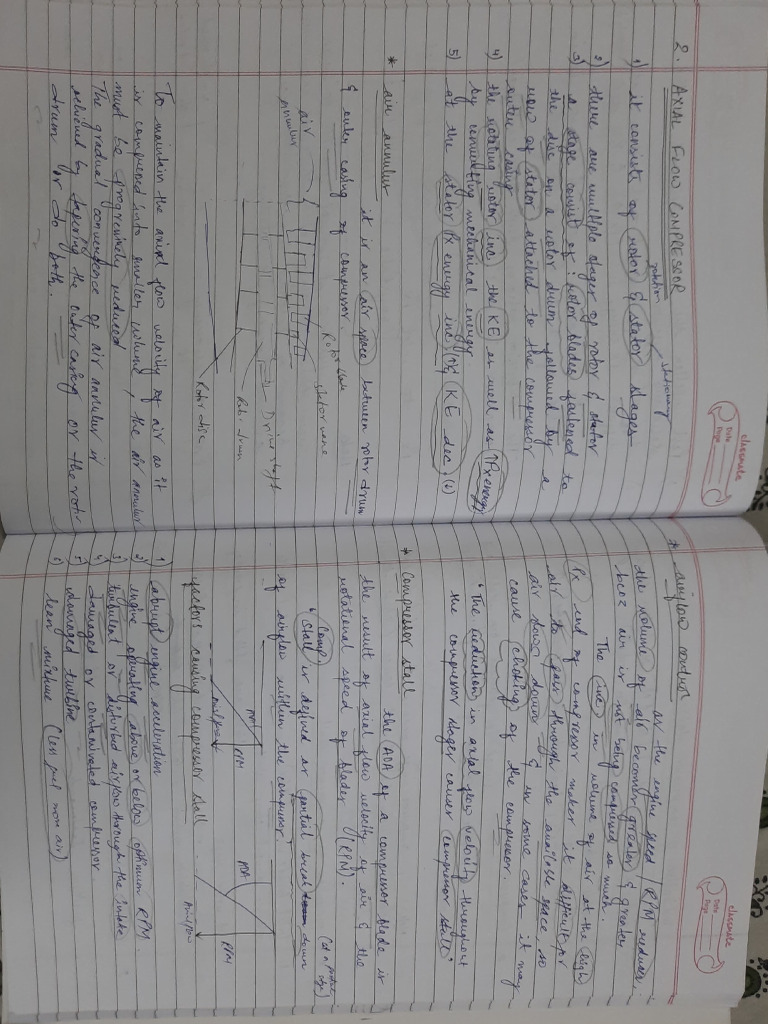 classmate
Date
Page
2. AXIAL FLOW COMPRESSOR
rotation
stationary
1) it consists of rotor & stator stages
2) there are multiple stages of rotor & stator
3) a stage consist of: rotor blades fastened to
the disc on a rotor drum followed by a
row of stator attached to the compressor
outer casing
4) the rotating rotor inc the KE as well as ↑Px energy
by converting mechanical energy
5) at the stator Px energy inc (↑), KE dec. (↓)
* air annulus
it is an air space between rotor drum
& outer casing of compressor.
air
annulus
Rotor blade
stator vane
Drive shaft
Rotor drum
Rotor disc
To maintain the axial flow velocity of air as it
is compressed into smaller volume, the air annulus
must be progressively reduced
The gradual convergence of air annulus is
achieved by tapering the outer casing or the rotor
drum or do both.
classmate
Date
Page
* airflow control
as the engine speed / RPM reduces,
the volume of air becomes greater & greater
bcoz air is not being compressed so much.
The inc in volume of air at the high
Px end of compressor makes it difficult for
air to pass through the available space, so
air slows down & in some cases it may
cause choking of the compressor.
"The reduction in axial flow velocity throughout
the compressor stages causes compressor stall"
* compressor stall
the AOA of a compressor blade is
the result of axial flow velocity of air & the
rotational speed of blades (RPM).
"Comp stall is defined as partial break down
of airflow within the compressor"
AOA
RPM
airflow
AOA
RPM
Airflow
factors causing compressor stall
1) abrupt engine acceleration
2) engine operating above or below optimum RPM
3) turbulent or disturbed airflow through the intake
4) damaged or contaminated compressor
5) damaged turbine
6) lean mixture (less fuel more air)